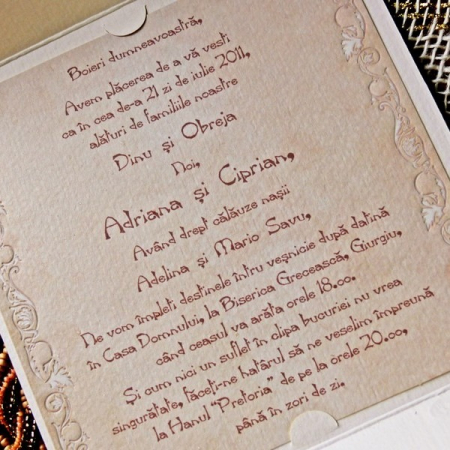 Boieri dumneavoastră,
Avem plăcerea de a vă vesti
ca în cea de-a 21 zi de iulie 2011,
alături de familiile noastre
Dinu și Obreja
Noi,
Adriana și Ciprian,
Având drept călăuze nașii
Adelina și Mario Savu,
Ne vom împleti destinele întru veșnicie după datină
în Casa Domnului, la Biserica Grecească, Giurgiu,
când ceasul va arăta orele 18.oo.
Și cum nici un suflet în clipa bucuriei nu vrea
singurătate, faceți-ne hatârul să ne veselim împreună
la Hanul "Pretoria" de pe la orele 20.oo,
până în zori de zi.